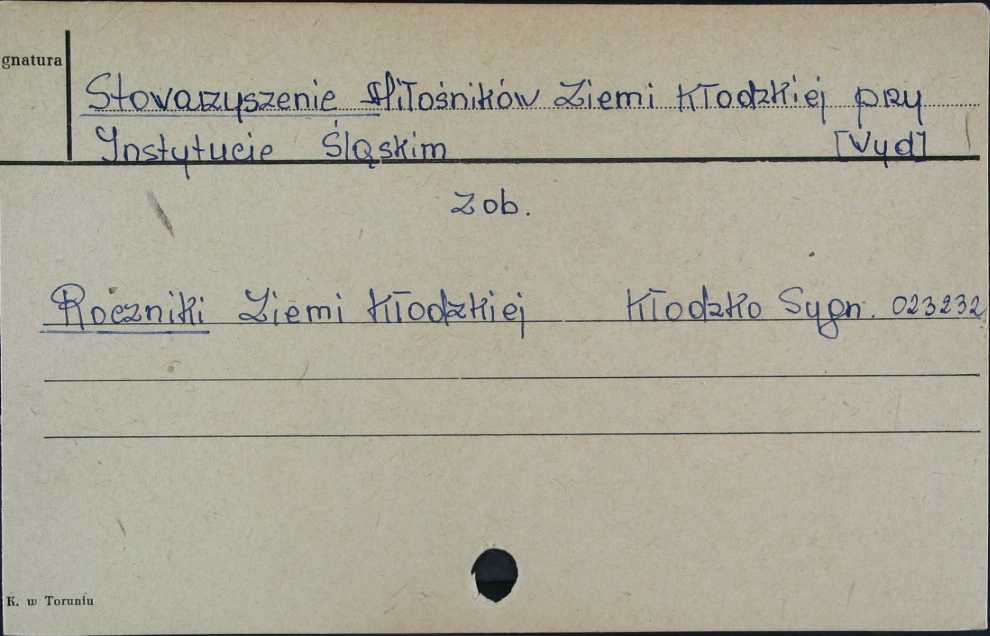 gnatura
Stowarzyszenie Miłośników Ziemi Kłodzkiej przy
Instytucie Śląskim [Wyd]
Zob.
Roczniki Ziemi Kłodzkiej Kłodzko Sygn. 023232
K. w Toruniu